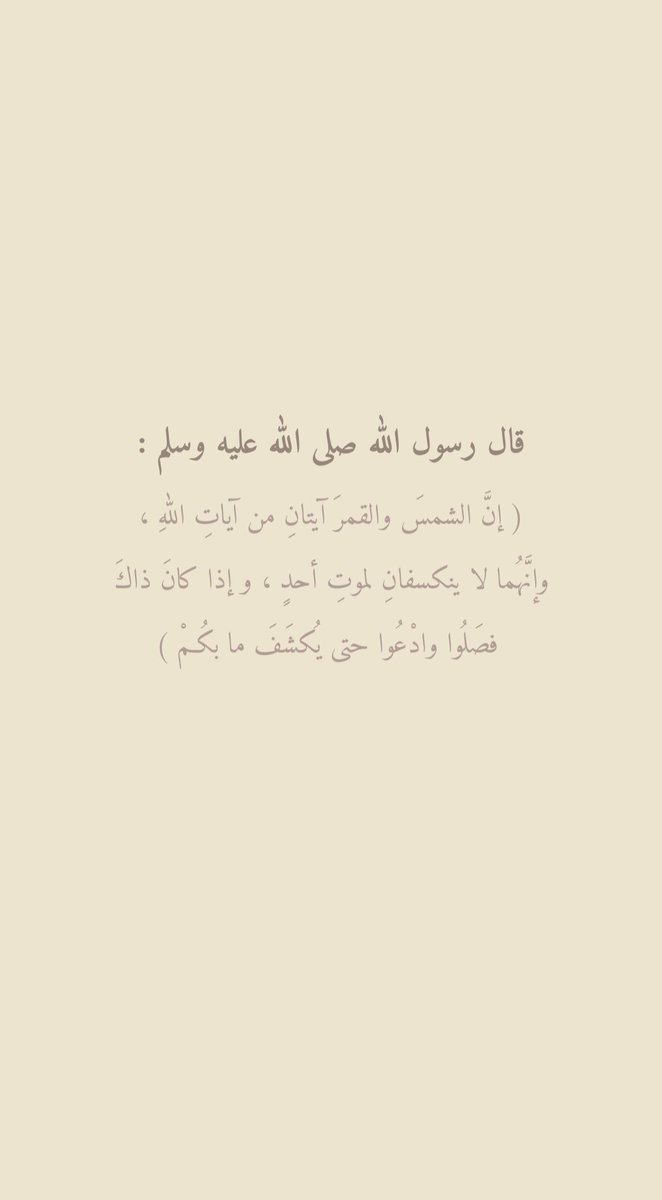 قال رسول الله صلى الله عليه وسلم :
( إنَّ الشمسَ والقمرَ آيتانِ من آياتِ اللهِ ،
وإنَّهُما لا ينكسفانِ لموتِ أحدٍ ، و إذا كانَ ذاكَ
فصَلُوا وادْعُوا حتى يُكشَفَ ما بكُـمْ )